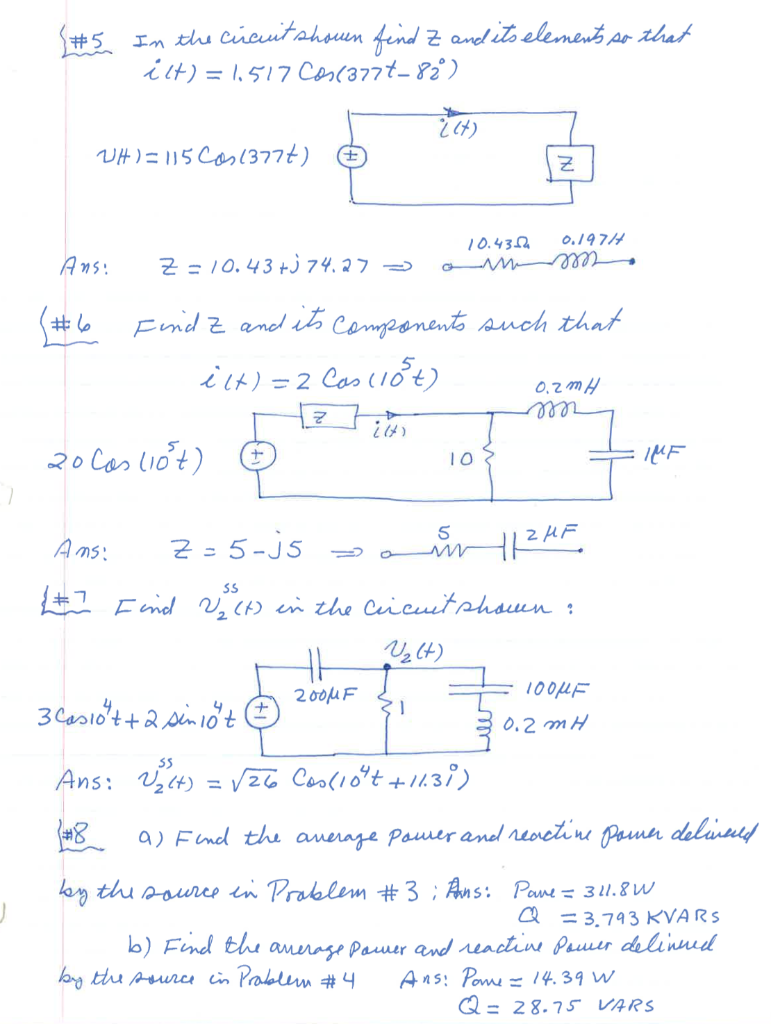 #5 In the circuit shown find Z and its elements so that
i(t) = 1.517 Cos(377t - 82°)
i(t)
v(t) = 115 Cos(377t)
±
Z
10.43Ω 0.197H
Ans: Z = 10.43 + j 74.27 ⇒
#6 Find Z and its components such that
i(t) = 2 Cos(10⁵t)
0.2mH
Z
i(t)
20 Cos(10⁵t)
±
10
1μF
5 2μF
Ans: Z = 5 - j5 ⇒
#7 Find v₂ˢˢ(t) in the circuit shown :
v₂(t)
200μF
100μF
3 Cos10⁴t + 2 sin10⁴t
±
1
0.2 mH
Ans: v₂ˢˢ(t) = √26 Cos(10⁴t + 11.31°)
#8 a) Find the average power and reactive power delivered
by the source in Problem #3 ; Ans: Pave = 311.8W
Q = 3.793 KVARS
b) Find the average power and reactive power delivered
by the source in Problem #4 Ans: Pave = 14.39 W
Q = 28.75 VARS